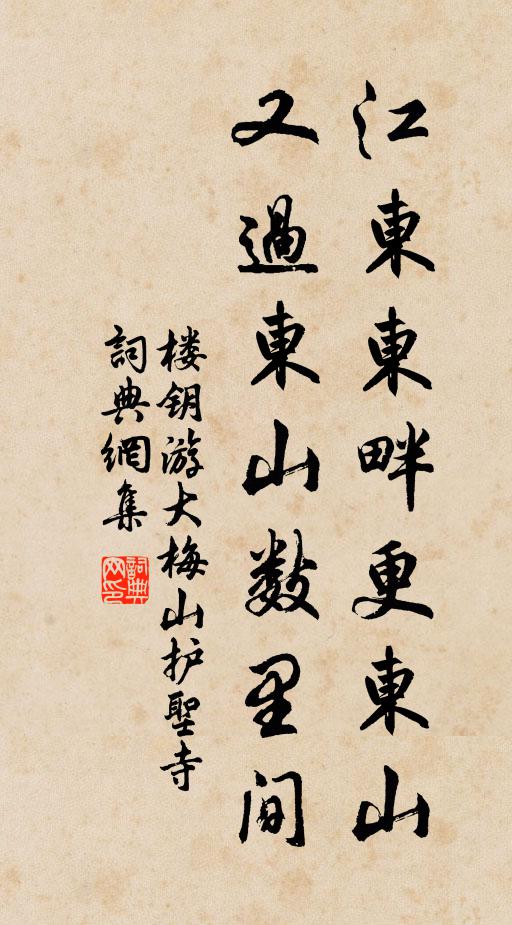 江東東畔更東山
又過東山数里间
楼钥游大梅山护聖寺
詞典網集
詞典网印